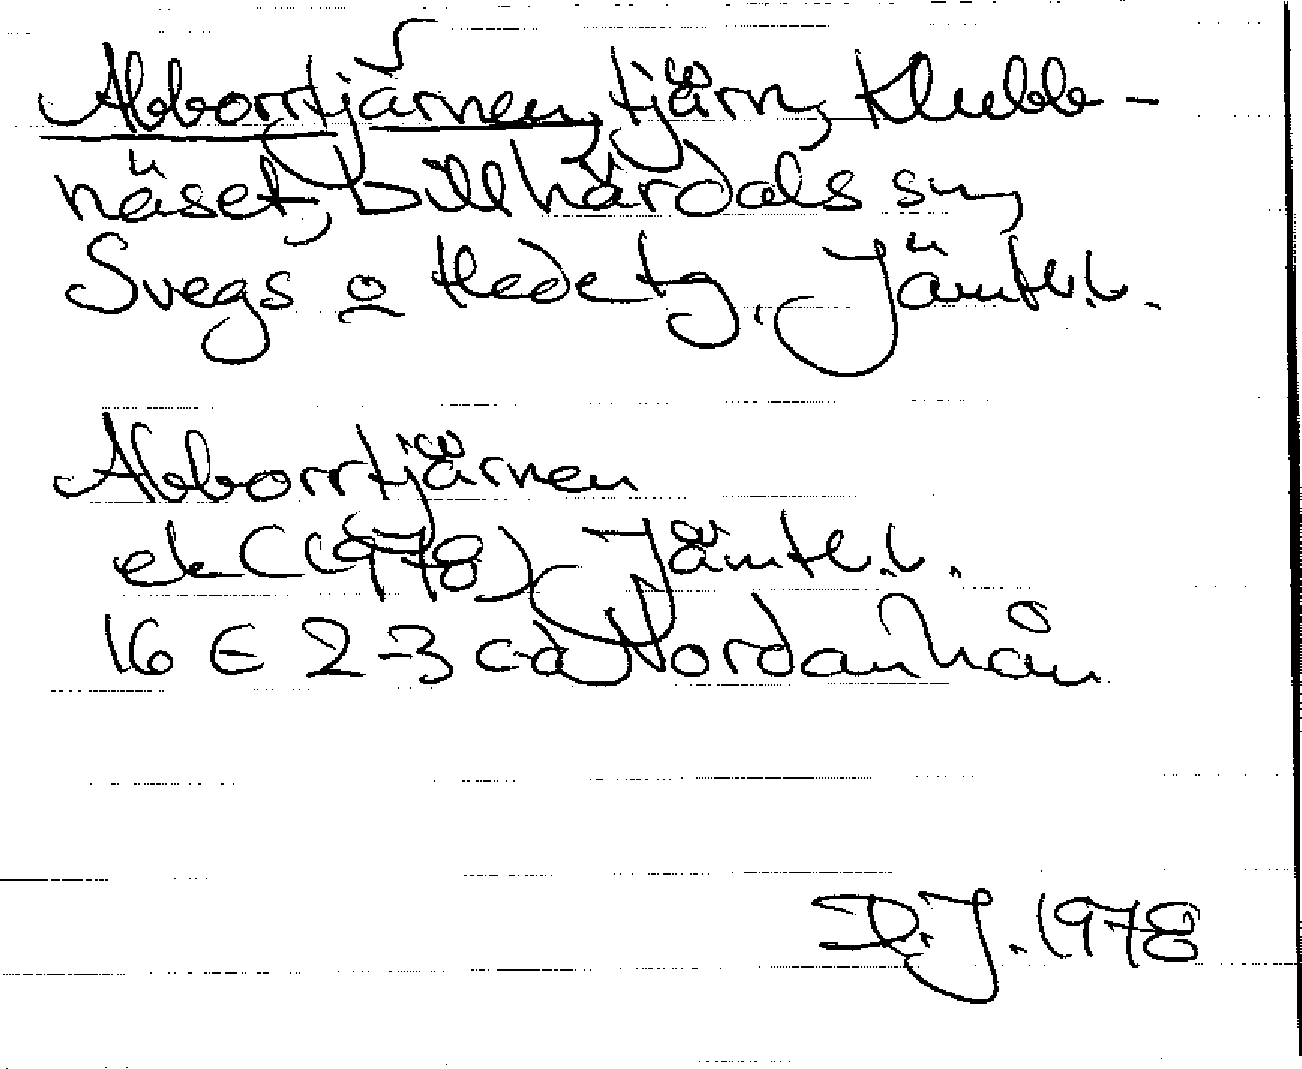 Abborrtjärnen, tjärn, Klubb-
näset, Lillhärdals sn,
Svegs o Hede tg. Jämtl.l.
Abborrtjärnen
ek (1978) Jämtl.l.
16 E 2-3 c-d Nordanhån
D.J. 1978